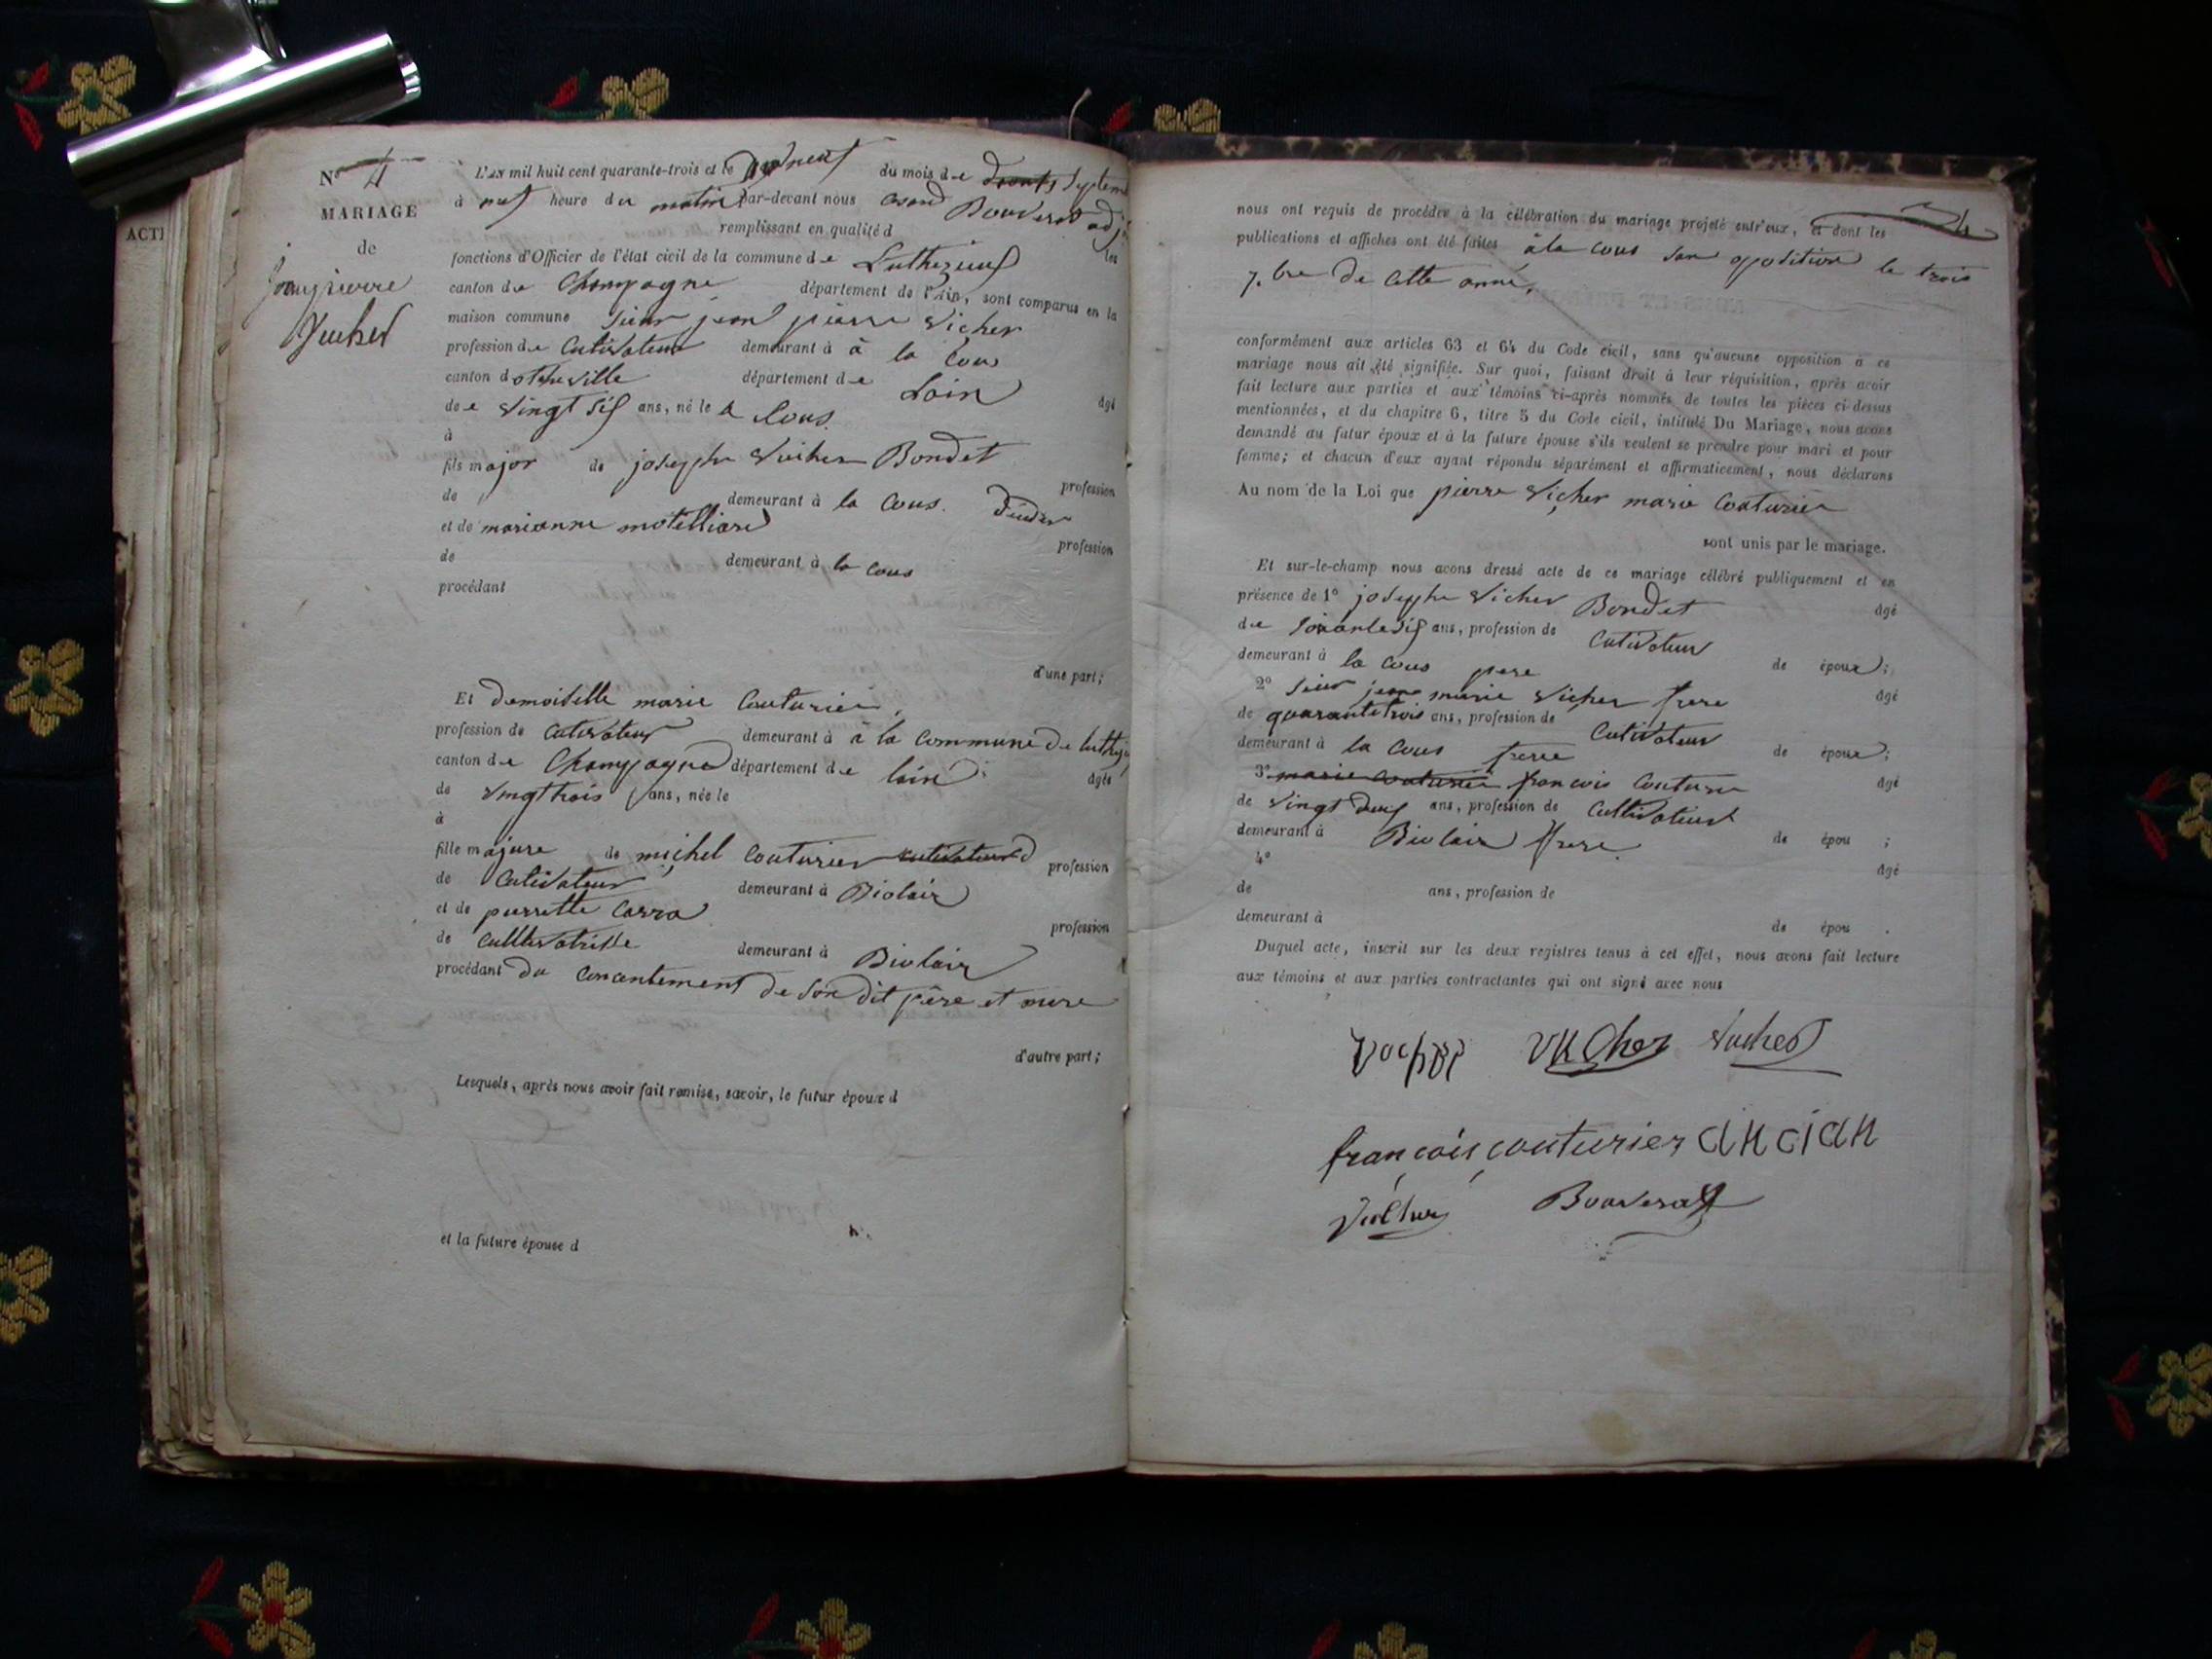 ACTI
Nº 4
MARIAGE
de
jean pierre
Vucher
L'an mil huit cent quarante-trois et le dix neuf du mois de septem
à neuf heure du matin par-devant nous Bouverat adj
remplissant en qualité d les
fonctions d'Officier de l'état civil de la commune de Luthezieux
canton de Champagne département de l'Ain, sont comparus en la
maison commune sieur jean pierre Vicher
profession de Cutivateur demeurant à à la Cous
canton d otheville département de Loin
de e vingt sis ans, né le a Cous. âgé
à
fils major de josephe Vucher Bondet
de demeurant à la Cous. profession
et de marianne motelliard
de demeurant à la Cous profession
procédant
d'une part;
Et demoiselle marie Couturier,
profession de Cutivateur demeurant à à la Commune de luthez
canton de Champagne département de loin âgée
de vingt trois ans, née le
à
fille majure de michel Couturier cutivateur profession
de Cutivateur demeurant à Biolair
et de pierrette Carra profession
de Cultivatrisse demeurant à Biolair
procédant du Concentement de son dit père et mere
d'autre part;
Lesquels, après nous avoir fait remise, savoir, le futur époux d
et la future épouse d
nous ont requis de procéder à la célébration du mariage projeté entr'eux, et dont les
publications et affiches ont été faites à la Cous san oppodition le trois
7.bre de Cette anné,
conformément aux articles 63 et 64 du Code civil, sans qu'aucune opposition à ce
mariage nous ait été signifiée. Sur quoi, faisant droit à leur réquisition, après avoir
fait lecture aux parties et aux témoins ci-après nommés de toutes les pièces ci-dessus
mentionnées, et du chapitre 6, titre 5 du Code civil, intitulé Du Mariage, nous avons
demandé au futur époux et à la future épouse s'ils veulent se prendre pour mari et pour
femme; et chacun d'eux ayant répondu séparément et affirmativement, nous déclarons
Au nom de la Loi que pierre Vicher marie Couturier
sont unis par le mariage.
Et sur-le-champ nous avons dressé acte de ce mariage célébré publiquement et en
présence de 1º josephe Vicher Bondet âgé
de soixantesis ans, profession de Cutivateur
demeurant à la Cous pere de époux;
2º sieur jean marie Vicher frere âgé
de quarante trois ans, profession de Cutivateur
demeurant à la Cous frere de époux;
3º marie couturier francois Couturie âgé
de vingt deux ans, profession de Cultivateur
demeurant à Biolair frere. de épou ;
4º âgé
de ans, profession de
demeurant à de épou .
Duquel acte, inscrit sur les deux registres tenus à cet effet, nous avons fait lecture
aux témoins et aux parties contractantes qui ont signé avec nous
Vucher Vucher
françois couturier ancian
Bouverat